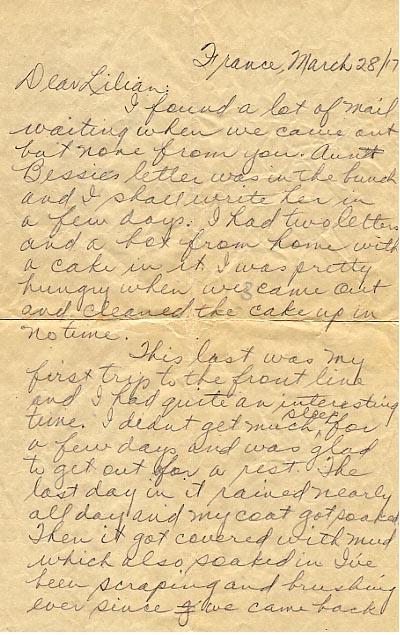 France, March 28/17
Dear Lilian:
I found a lot of mail
waiting when we came out
but none from you. Aunt
Bessies letter was in the bunch
and I shall write her in
a few days. I had two letters
and a box from home with
a cake in it. I was pretty
hungry when we came out
and cleaned the cake up in
no time.
This last was my
first trip to the front line
and I had quite an interesting
time. I didnt get much sleep for
a few days and was glad
to get out for a rest. The
last day in it rained nearly
all day and my coat got soaked
Then it got covered with mud
which also soaked in I've
been scraping and brushing
ever since we came back